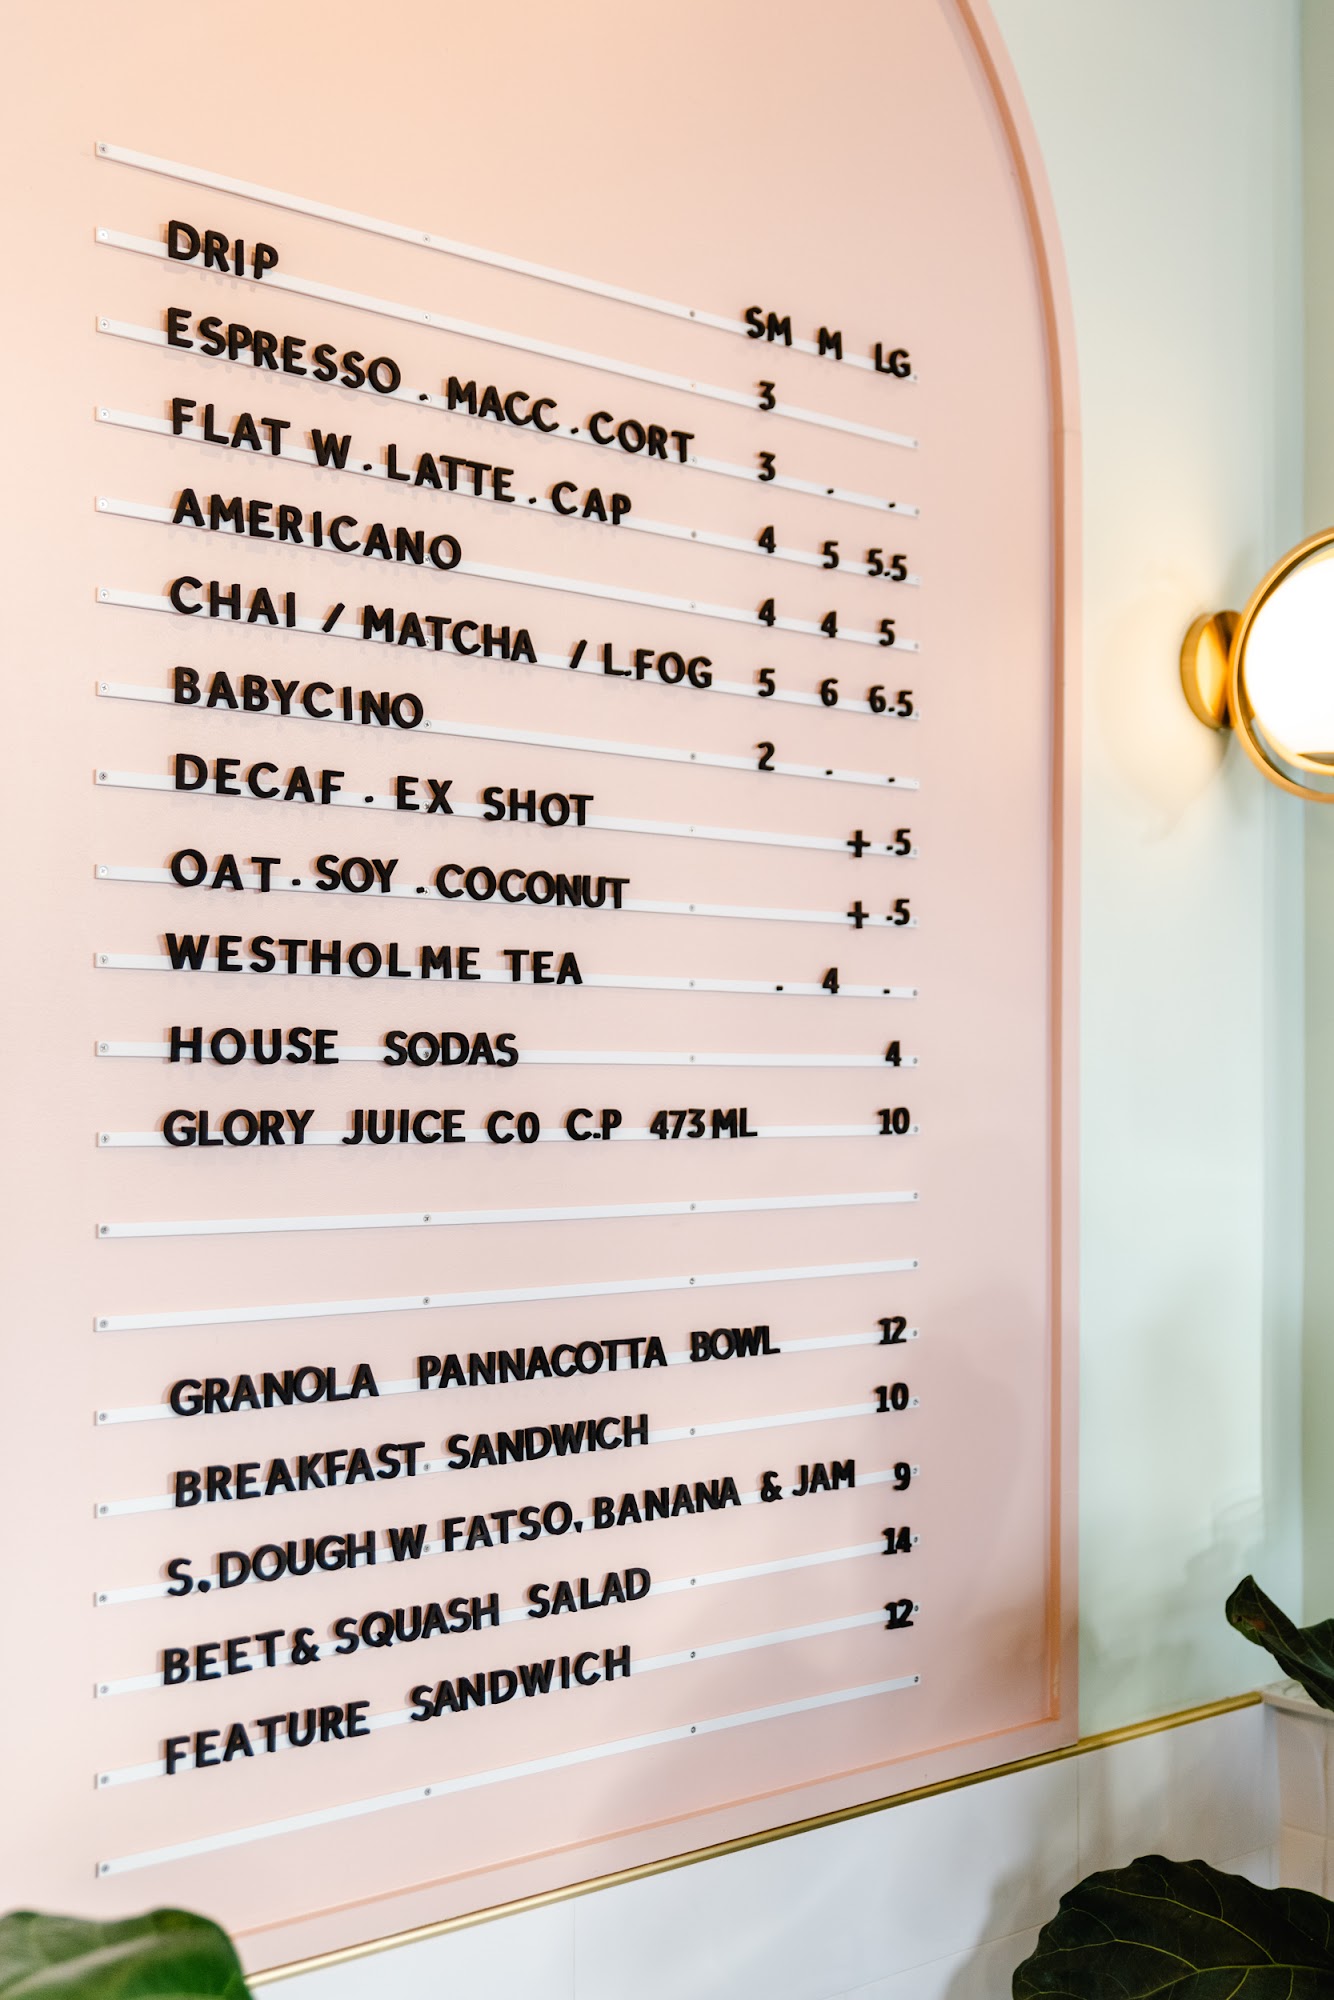 SM M LG
DRIP 3
ESPRESSO . MACC . CORT 3 . .
FLAT W . LATTE . CAP 4 5 5.5
AMERICANO 4 4 5
CHAI / MATCHA / L.FOG 5 6 6.5
BABYCINO 2 . .
DECAF . EX SHOT + .5
OAT . SOY . COCONUT + .5
WESTHOLME TEA . 4 .
HOUSE SODAS 4
GLORY JUICE CO C.P 473ML 10
GRANOLA PANNACOTTA BOWL 12
BREAKFAST SANDWICH 10
S.DOUGH W FATSO, BANANA & JAM 9
BEET & SQUASH SALAD 14
FEATURE SANDWICH 12